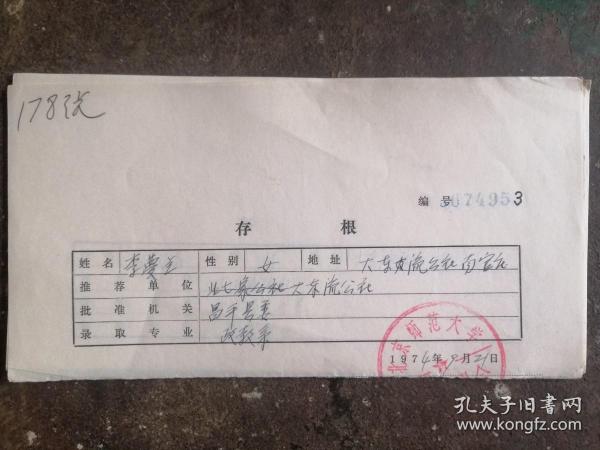 178张
编号 0074953
存根
姓名 李 性别 女 地址 大东流公社
推荐单位 北七家公社 大东流公社
批准机关 昌平县委
录取专业 政教系
北京师范大学
1974年9月21日
孔夫子旧书网
www.kongfz.com